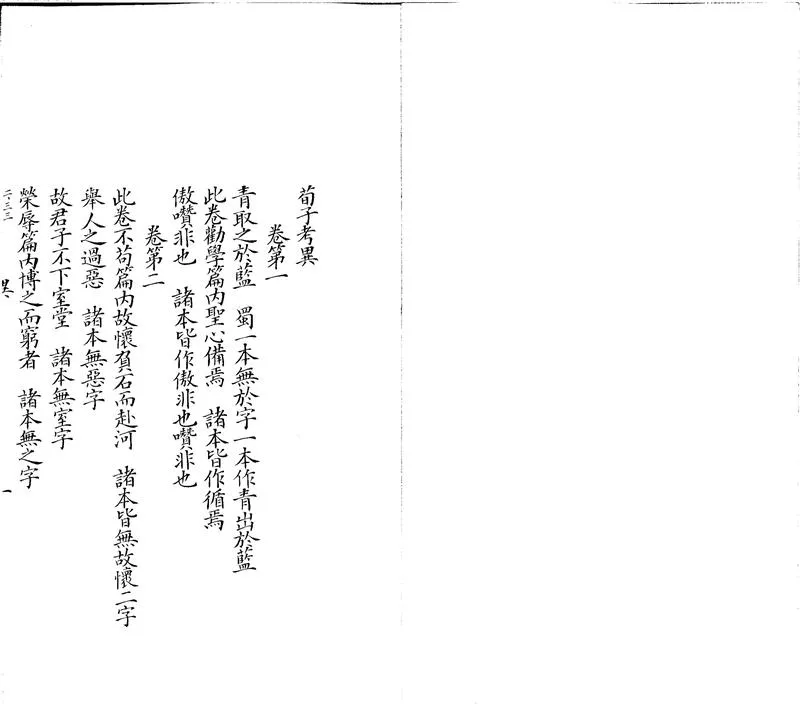 荀子考異
卷第一
青取之於藍　蜀一本無於字一本作青出於藍
此卷勸學篇內聖心備焉　諸本皆作循焉
傲囋非也　諸本皆作傲非也囋非也
卷第二
此卷不苟篇內故懷負石而赴河　諸本皆無故懷二字
舉人之過惡　諸本無惡字
故君子不下室堂　諸本無室字
榮辱篇內博之而窮者　諸本無之字
二·三三
異、
一